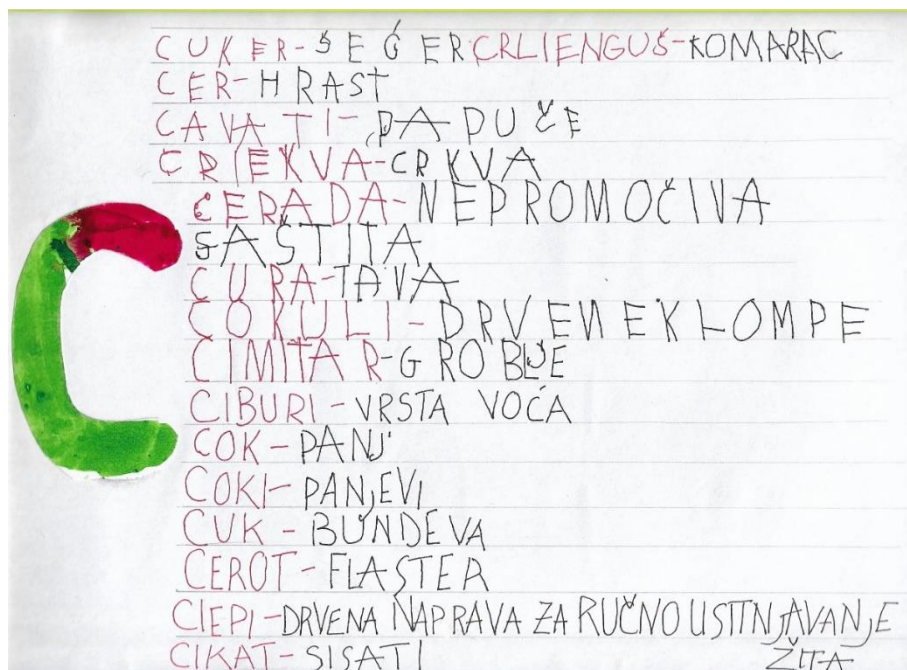 C
CUKER-ŠEĆER CRLIENGUŠ-KOMARAC
CER-HRAST
CAVATI-PAPUČE
CRIEKVA-CRKVA
CERADA-NEPROMOČIVA
ZAŠTITA
CURA-TAVA
COKULI-DRVENE KLOMPE
CIMITAR-GROBLJE
CIBURI-VRSTA VOĆA
COK-PANJ
COKI-PANJEVI
CUK-BUNDEVA
CEROT-FLASTER
CIEPI-DRVENA NAPRAVA ZA RUČNO USITNJAVANJE
CIKAT-SISATI ŽITA